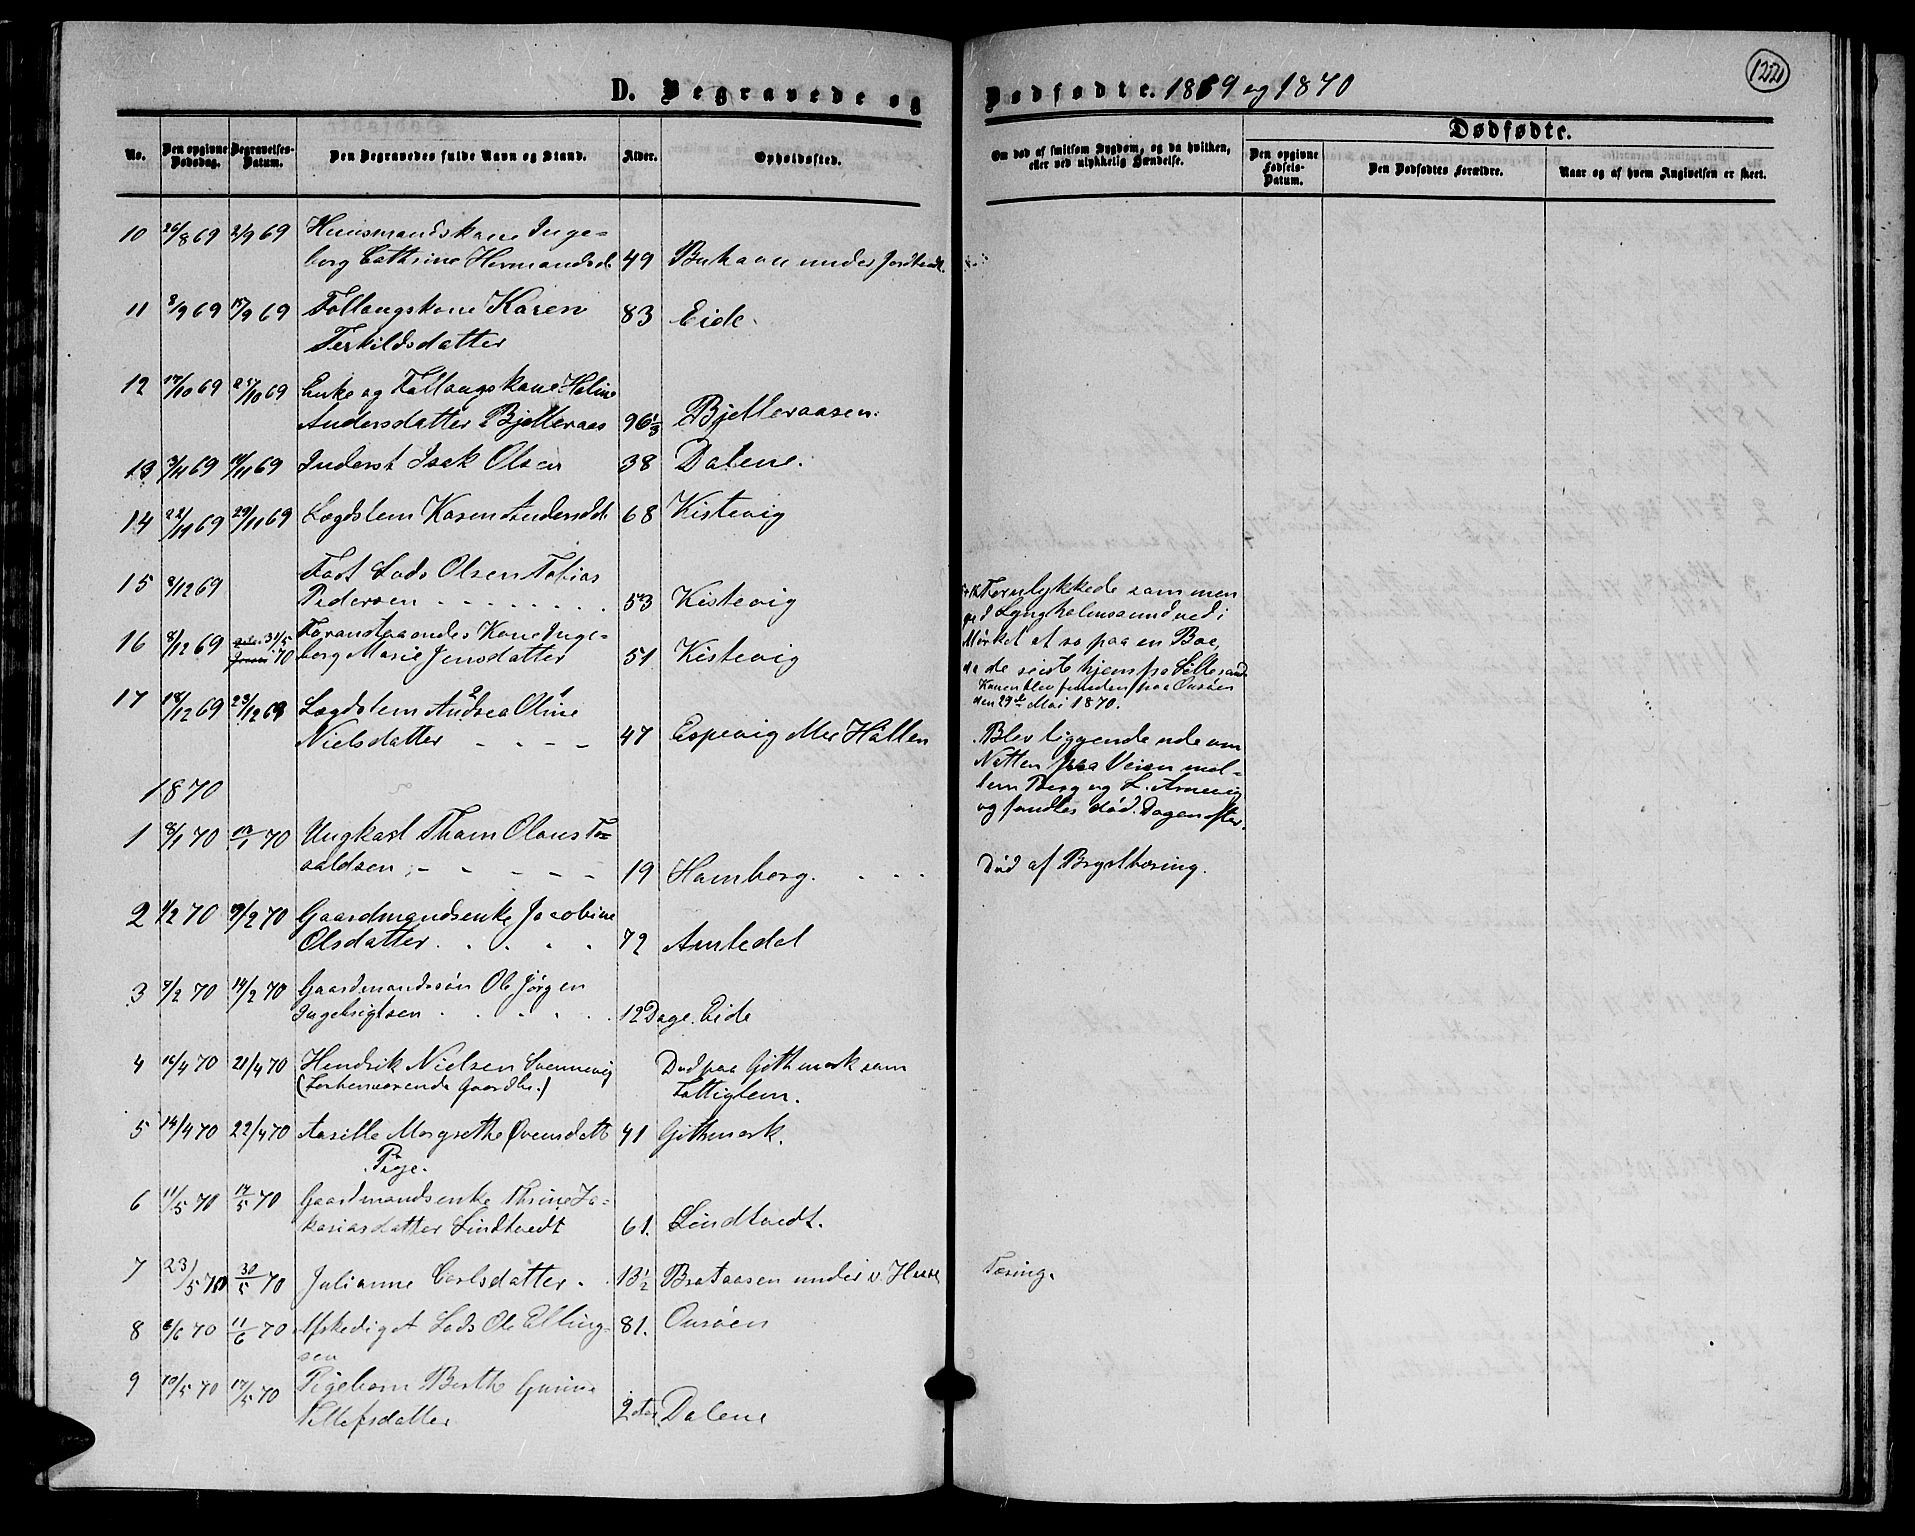 122
D. Begravede og Dødfødte. 1869 og 1870
Dødfødte.
No.
Den opgivne Dødsdag.
Begravelses-Datum.
Den Begravedes fulde Navn og Stand.
Alder.
Opholdssted.
Om død af smitsom Sygdom, og da hvilken, eller ved ulykkelig Hændelse.
Den opgivne Fødsels-Datum.
Den Dødfødtes Forældre.
Naar og af hvem Angivelsen er skeet.
10 26/8 69 2/9 69 Huusmandskone Inge-
borg Cathrine Hermandsd. 49
11 8/9 69 15/9 69 Føllaugskone Karen 83 Eide.
Terkildsdatter
12 17/10 69 Enke og Føllaugskone
Andersdatter Bjelleraas 96 1/3 Bjelleraasen.
13 3/11 69 11/11 69 Inderst Isak Olsen 38 Dalene.
14 22/11 69 29/11 69 Lægdslem Karen Andersdt. 68 Kistevig
15 8/12 69 Fast Lods Olsen Tobias
Pedersen 53 Kistevig
16 8/12 69 31/5 70 Foranstaaendes Kone Inge-
borg Marie Jensdatter 51 Kistevig
Forulykkede sammen
ved Lyngholmsaund ved i
Mørket at so paa en Boe,
da de seilte hjem fra Lillesand
Konen blev funden paa Ousøen
den 29de Mai 1870.
17 18/12 69 23/12 69 Lægdslem Andrea Oline
Nielsdatter 47 Espevig Mee Hallen
Blev liggende ude om
Natten paa Veien mel-
lem Berg og L. Arnevig
og fandtes død Dagen efter.
1870
1 8/1 70 13/1 70 Ungkarl Tham Olaus To-
raldsen 19 Homborg. Død af Brysttæring.
2 1/2 70 9/2 70 Gaardmandsenke Jacobine
Olsdatter 72 Amtedal
3 7/2 70 14/2 70 Gaardmandssøn Ole Jørgen
Ingebrigtsen 12 Dage. Eide
4 16/4 70 21/4 70 Hendrik Nielsen Svennevig Død paa Githmark som
(forhenværende Gaardbr.) Fattiglem.
5 14/4 70 22/4 70 Aasille Margrethe Øvensdatt 41 Githmark.
Pige.
6 11/5 70 17/5 70 Gaardmandsenke Thrine Za-
kariasdatter Lindtvedt 61. Lindtvedt.
7 23/5 70 30/5 70 Julianne Carlsdatter. 13 1/2 Brataasen under v. Hæstæ Tæring.
8 6/6 70 11/6 70 Afskediget Lods Ole Elling-
sen 81. Ousøen
9 10/5 70 17/5 70 Pigebarn Berthe Gurine
Tellefsdatter Dalene